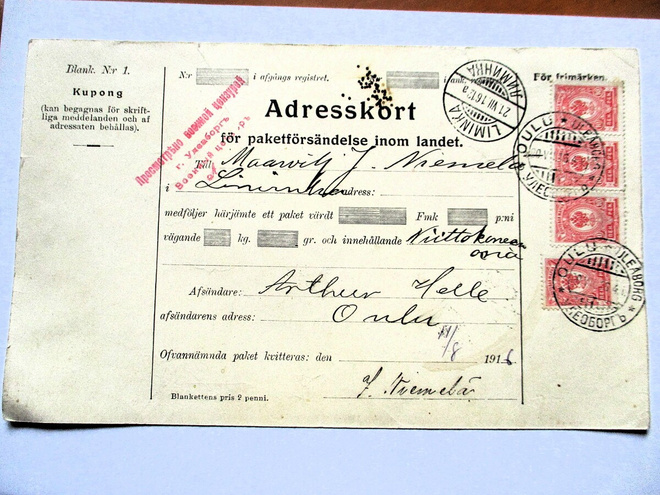 Blank. N:r 1.
Kupong
(kan begagnas för skrift-
liga meddelanden och af
adressaten behållas).
N:r i afgångs registret. i ank. r
För frimärken.
LIMINKA ЛИМИНКА
21.VII.16.12
Adresskort
för paketförsändelse inom landet.
Просмотрѣно военной цензурой
г. Улеаборгъ
Военный цензоръ
Till J. Niemelä
i Liminka adress:
medföljer härjämte ett paket värdt Fmk p:ni
vägande kg. gr. och innehållande Niittokoneen
osia
Afsändare: Arthur Helle
afsändarens adress: Oulu
Ofvannämnda paket kvitteras: den 1/8 1916
J. Niemelä
Blankettens pris 2 penni.
OULU ULEÅBORG
УЛЕОБОРГЪ
OULU ULEÅBORG
УЛЕОБОРГЪ